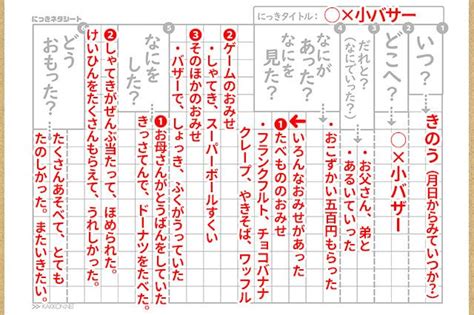 にっきネタシート
にっきタイトル：○×小バザー
1
いつ？
きのう（月日からみていつか？）
2
どこへ？
○×小バザー
3
だれと？
（なにでいった？）
・お父さん、弟と
・あるいていった
4
なにが
あった？
なにを
見た？
・おこずかい五百円もらった
・いろんなおみせがあった
❶たべもののおみせ
・フランクフルト、チョコバナナ
クレープ、やきそば、ワッフル
❷ゲームのおみせ
・しゃてき、スーパーボールすくい
❸そのほかのおみせ
・バザーで、しょっき、ふくがうっていた
5
なにを
した？
❶お母さんがとうばんをしていた
きっさてんで、ドーナツをたべた。
❷しゃてきがぜんぶ当たって、ほめられた。
けいひんをたくさんもらえて、うれしかった。
6
どう
おもった？
たくさんあそべて、とても
たのしかった。またいきたい。